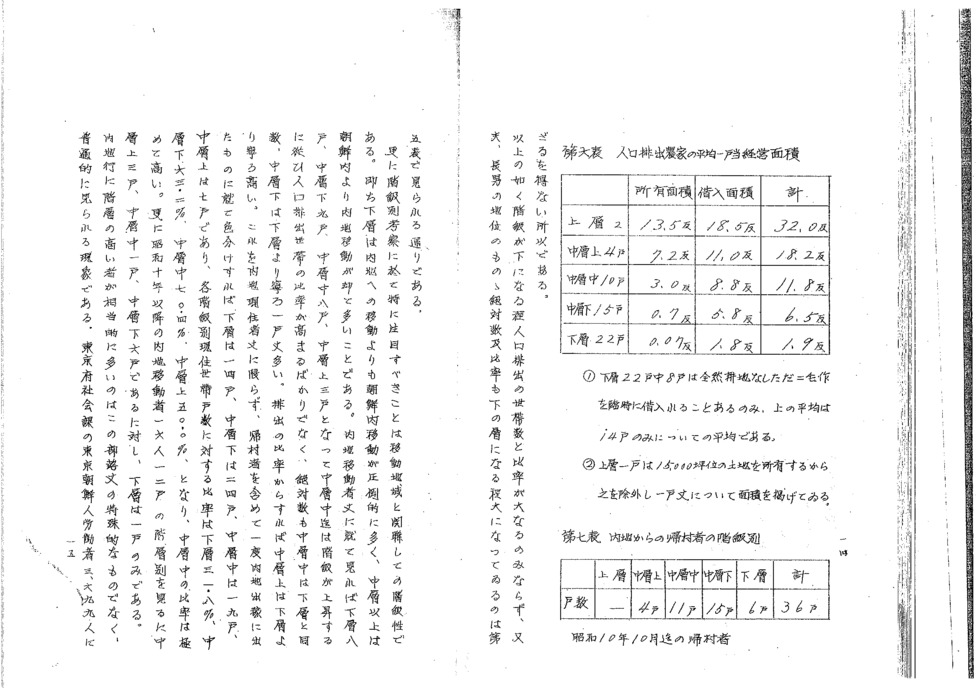 ざるを得ない所以である。
第六表　人口排出農家の平均一戸当経営面積
所有面積 借入面積 計
上層 2 13.5反 18.5反 32.0反
中層上4戸 7.2反 11.0反 18.2反
中層中10戸 3.0反 8.8反 11.8反
中層下15戸 0.7反 5.8反 6.5反
下層22戸 0.07反 1.8反 1.9反
① 下層22戸中8戸は全然耕地なしただ二毛作
を臨時に借入れることあるのみ、上の平均は
14戸のみについての平均である。
② 上層一戸は15000坪位の土地を所有するから
之を除外し一戸丈について面積を掲げてゐる
第七表　内地からの帰村者の階級別
上層 中層上 中層中 中層下 下層 計
戸数 — 4戸 11戸 15戸 6戸 36戸
昭和10年10月迄の帰村者
以上の如く階級が下になる程人口排出の世帯数と比率が大なるのみならず、又
夫、長男の地位のものゝ絶対数及比率も下の層になる程大になつてゐるのは第
一四
五表で見られる通りである。
更に階級別考察に於て特に注目すべきことは移動地域と関聯しての階級性で
ある。即ち下層は内地への移動よりも朝鮮内移動が圧倒的に多く、中層以上は
朝鮮内より内地移動が却て多いことである。内地移動者丈に就て見れば下層八
戸、中層下九戸、中層中八戸、中層上三戸となつて中層中迄は階級が上昇する
に従ひ人口排出世帯の比率が高まるばかりでなく、絶対数も中層中は下層と同
数、中層下は下層より寧ろ一戸丈多い。排出の比率からすれば中層上は下層よ
り寧ろ高い。これを内地現住者丈に限らず、帰村者を含めて一度内地出稼に出
たものに就て色分けすれば下層は一四戸、中層下は二四戸、中層中は一九戸、
中層上は七戸であり、各階級別現住世帯戸数に対する比率は下層三一・八%、中
層下六三・二%、中層中七〇・四%、中層上五〇・〇%、となり、中層中の比率は極
めて高い。更に昭和十年以降の内地移動者一六人一二戸の階層別を見るに中
層上三戸、中層中一戸、中層下六戸であるに対し、下層は一戸のみである。
内地行に階層の高い者が相当的に多いのはこの部落丈の特殊的なものでなく、
普遍的に見られる現象である。東京府社会課の東京朝鮮人労働者三、六九九人に
一五